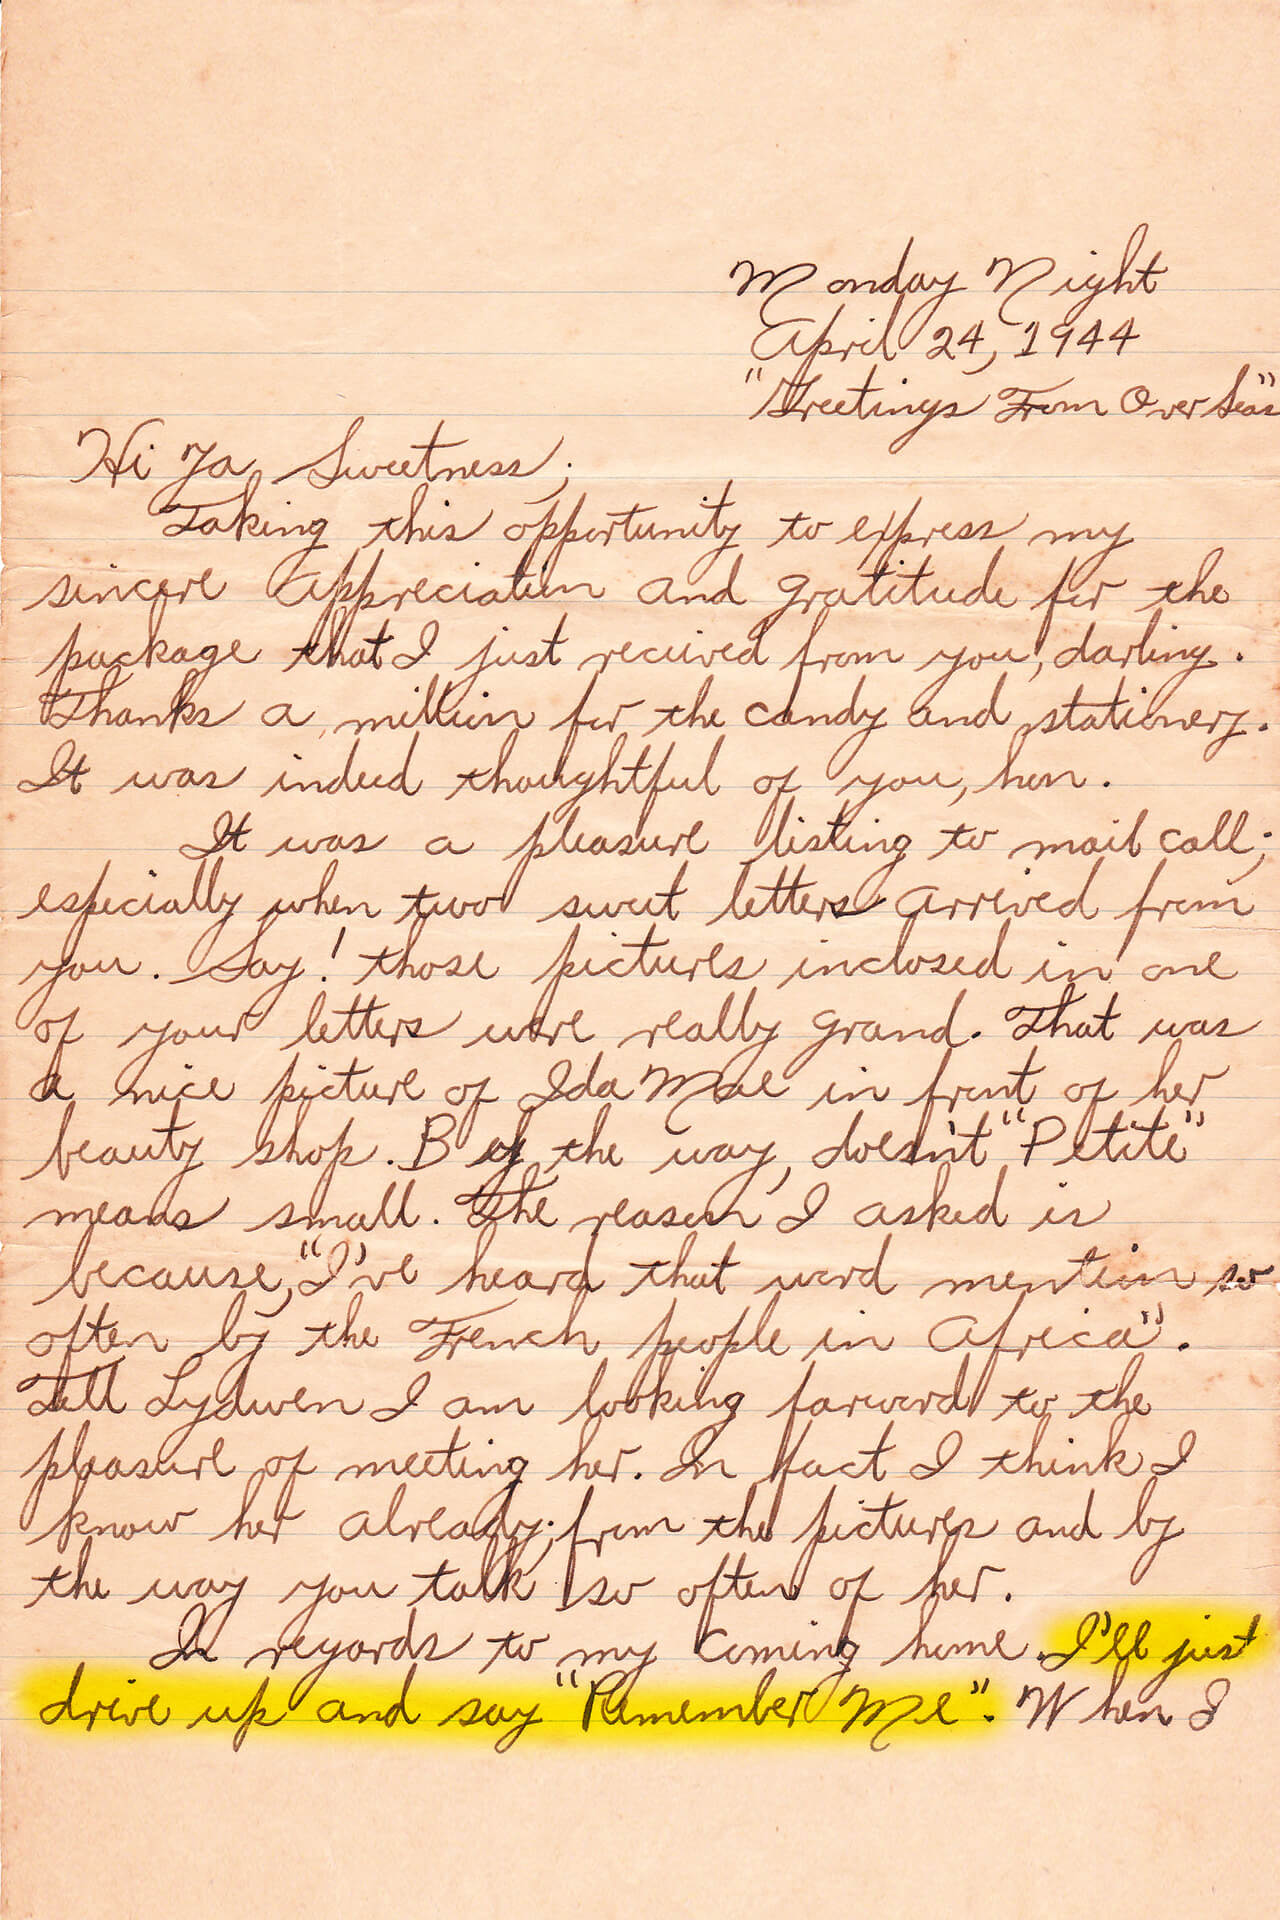 Monday Night
April 24, 1944
"Greetings From Over Seas"
Hi Ya Sweetness;
Taking this opportunity to express my
sincere appreciation and gratitude for the
package that I just recieved from you, darling.
Thanks a million for the candy and stationery.
It was indeed thoughtful of you, hon.
It was a pleasure listing to mail call;
especially when two sweet letters arrived from
you. Say! those pictures inclosed in one
of your letters were really grand. That was
a nice picture of Ida Mae in front of her
beauty shop. By the way, doesn't "Petite"
means small. The reason I asked is
because, "I've heard that word mention so
often by the French people in Africa".
Tell Lydwen I am looking forward to the
pleasure of meeting her. In fact I think I
know her already; from the pictures and by
the way you talk so often of her.
In regards to my coming home. I'll just
drive up and say "Remember Me". When I